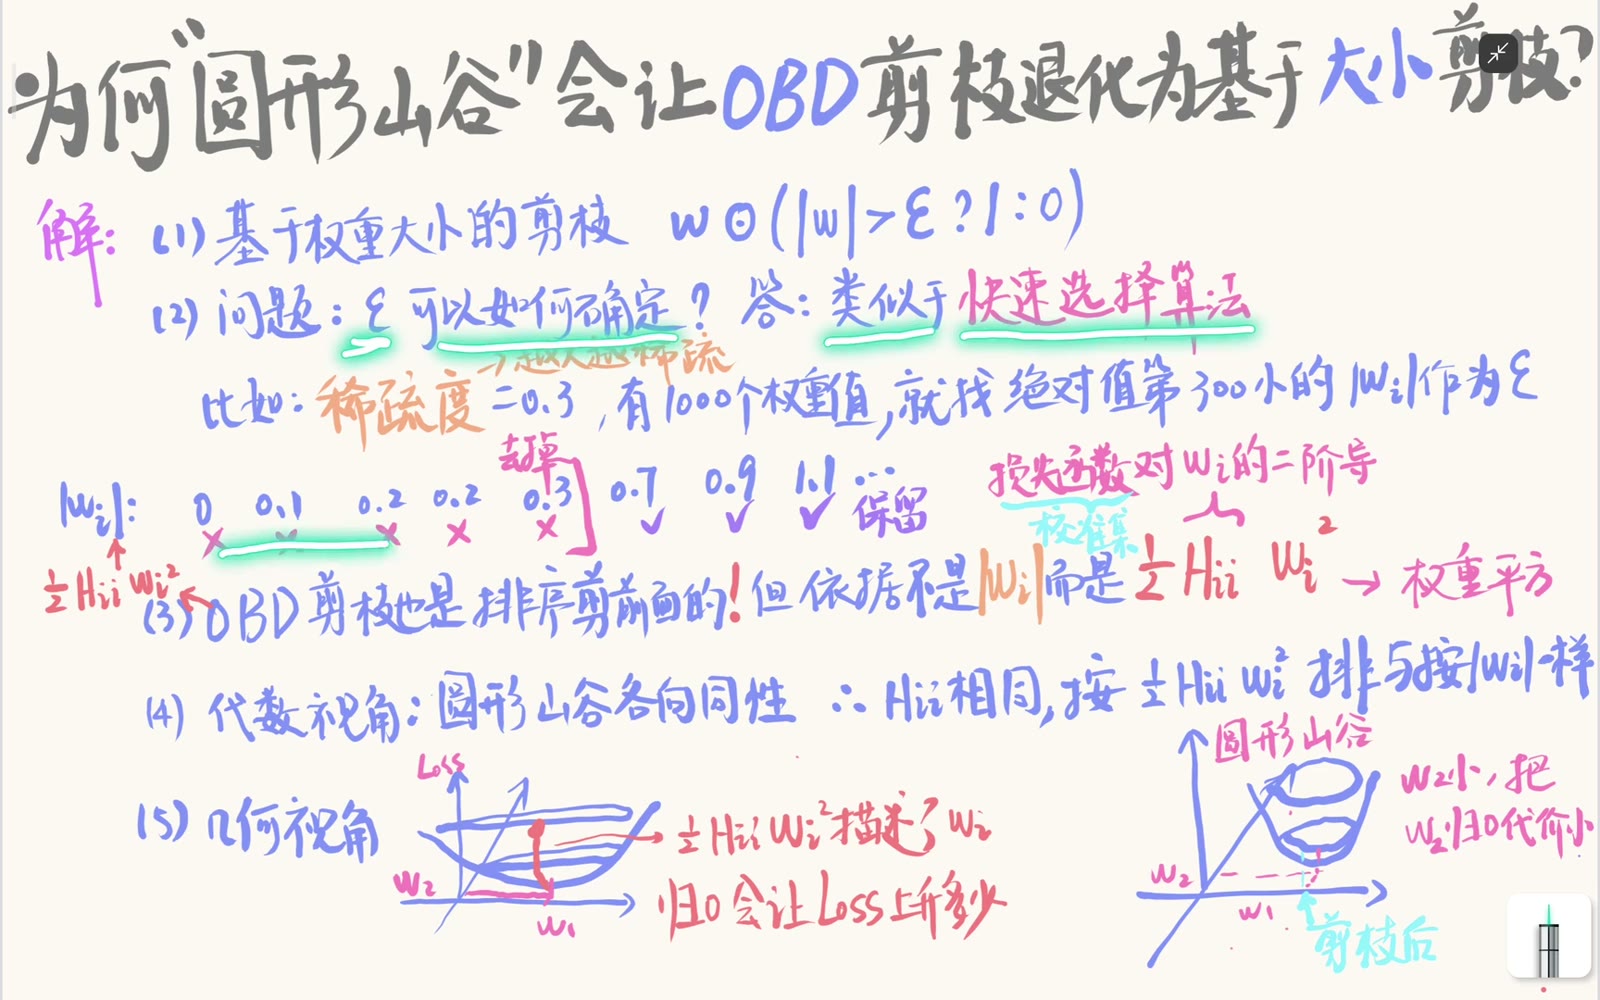 为何"圆形山谷"会让OBD剪枝退化为基于大小剪枝?
解: (1) 基于权重大小的剪枝 w⊙(|w|>ε?1:0)
(2) 问题: ε可以如何确定? 答: 类似于快速选择算法
→越大越稀疏
比如: 稀疏度=0.3, 有1000个权重值, 就找绝对值第300小的|Wi|作为ε
去掉
|Wi|: 0 0.1 0.2 0.2 0.3 0.7 0.9 1.1 ...
保留
损失函数对Wi的二阶导
校准集
½HiiWi²
(3) OBD剪枝也是排序剪前面的! 但依据不是|Wi|而是½Hii Wi² → 权重平方
(4) 代数视角: 圆形山谷各向同性 ∴ Hii相同, 按½HiiWi²排与按|Wi|一样
(5) 几何视角
Loss
W2
W1
½HiiWi²描述了Wi
归0会让Loss上升多少
圆形山谷
W2
W1
剪枝后
W2小, 把
W2归0代价小